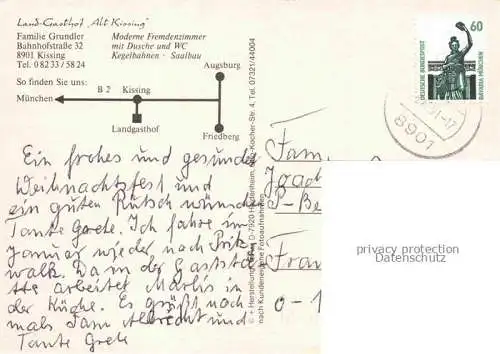 Land-Gasthof „Alt Kissing"
Familie Grundler
Bahnhofstraße 32
8901 Kissing
Tel. 0 82 33 / 58 24
Moderne Fremdenzimmer
mit Dusche und WC
Kegelbahnen · Saalbau
So finden Sie uns:
Augsburg
B 2 Kissing
München
Landgasthof
Friedberg
Ein frohes und gesundes
Weihnachtsfest und
ein guten Rutsch wünscht
Tante Grete. Ich fahre im
Januar wieder nach Pritz
walk. In der Gaststät
te arbeitet Marlis in
der Küche. Es grüßt noch
mals Fam und
Tante Grete
D-7920 Heidenheim, -Kocher-Str. 4, Tel. 07321/44004
nach Kundeneigene Fotoaufnahmen
60
DEUTSCHE BUNDESPOST
BAVARIA MÜNCHEN
8901
Fam
P-Be
Fran
0-1
privacy protection
Datenschutz